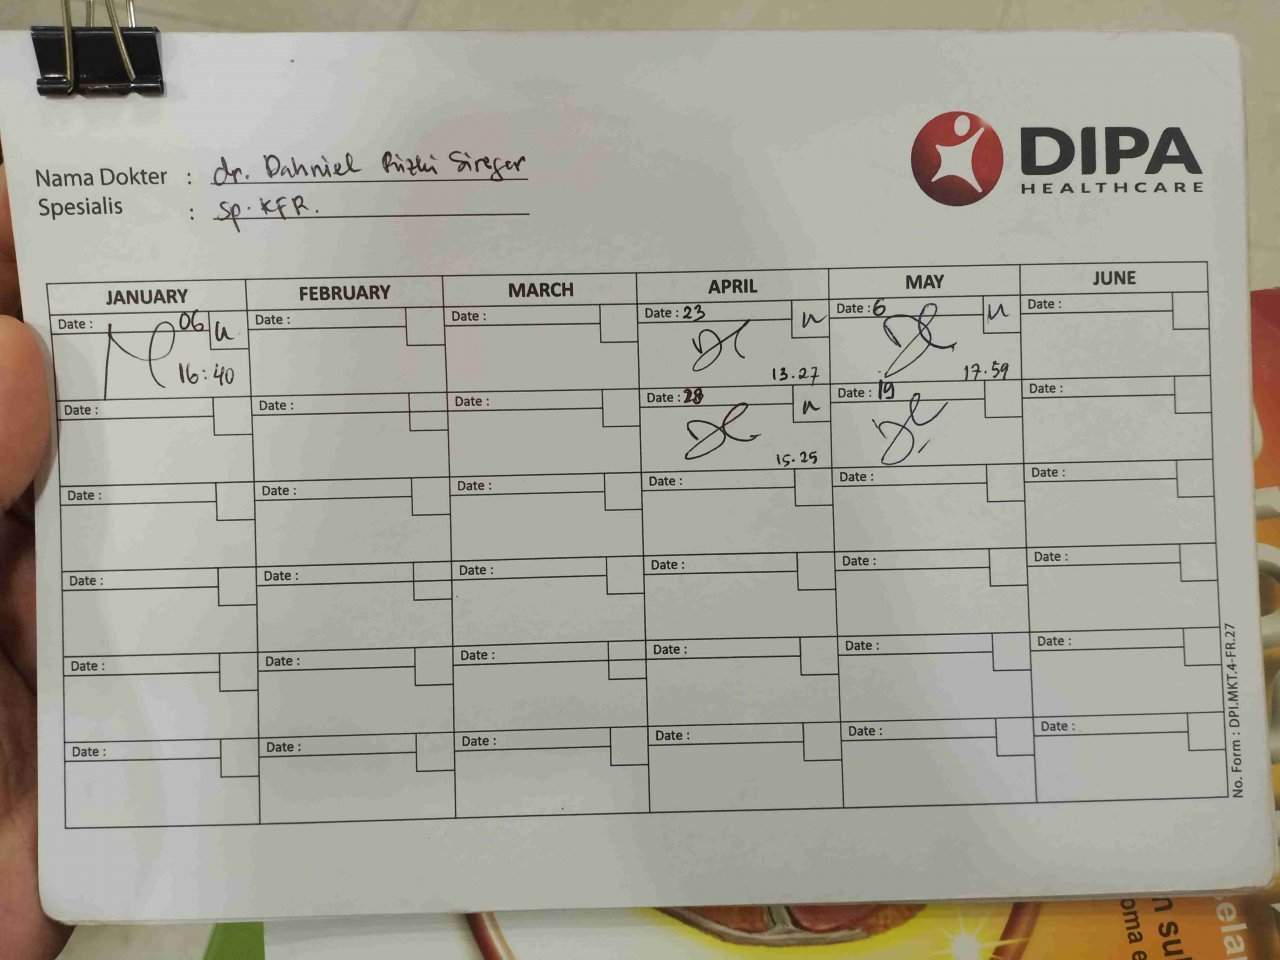 DIPA
HEALTHCARE
Nama Dokter : dr. Dahniel Rizki Siregar
Spesialis : Sp.KFR.
JANUARY FEBRUARY MARCH APRIL MAY JUNE
Date : 06 u Date : Date : Date : 23 u Date : 6 u Date :
16:40 13.27 17.59
Date : Date : Date : Date : 28 u Date : 19 Date :
15.25
Date : Date : Date : Date : Date : Date :
Date : Date : Date : Date : Date : Date :
Date : Date : Date : Date : Date : Date :
Date : Date : Date : Date : Date : Date :
No. Form : DPI.MKT.4-FR.27
n sul
oma e
elar